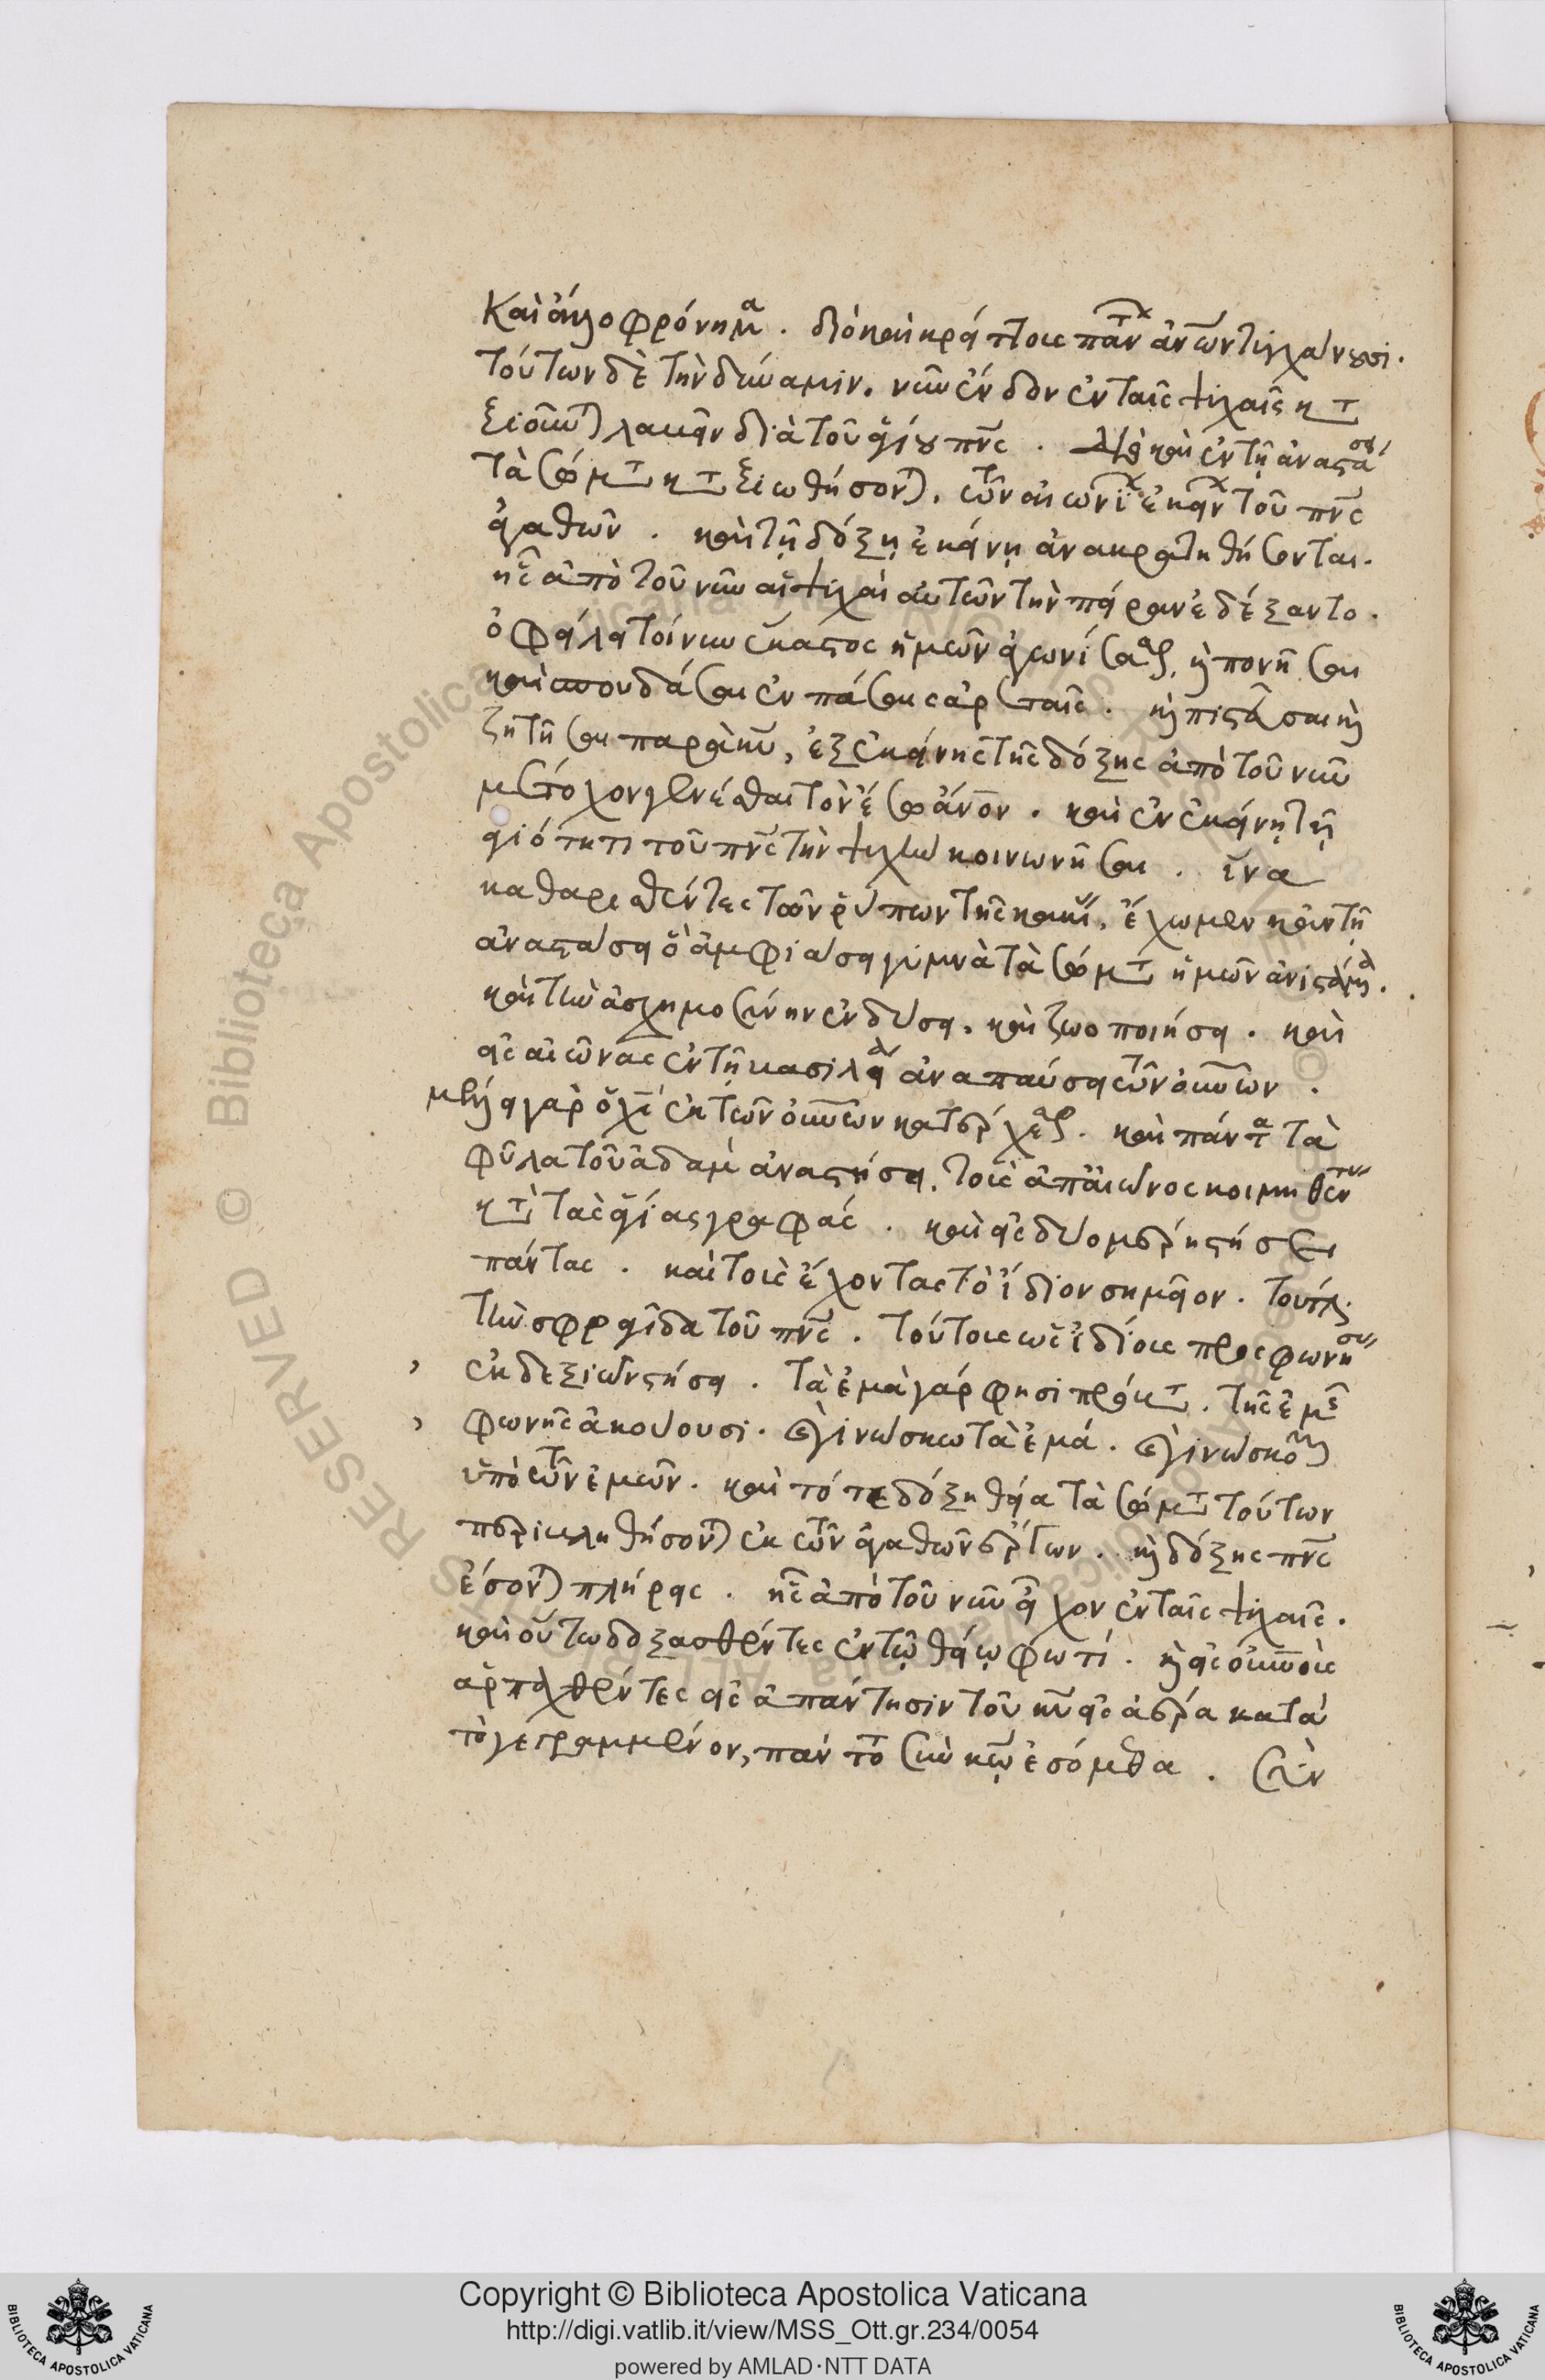 Καὶ ἄλλο φρόνημα. διὸ καὶ κρείττους πάντων ἀνων τυγχάνουσι.
τούτων δὲ τὴν δύναμιν. νῦν ἔνδον ἐν ταῖς ψυχαῖς κατα
ξιοῦνται λαβεῖν διὰ τοῦ ἁγίου πνς. διὸ καὶ ἐν τῇ ἀναστάσει
τὰ σώματα καταξιωθήσονται. τῶν αἰωνίων ἐκείνων τοῦ πνς
ἀγαθῶν. καὶ τῇ δόξῃ ἐκείνῃ ἀνακρατηθήσονται.
ἧς ἀπὸ τοῦ νῦν αἱ ψυχαὶ αὐτῶν τὴν πεῖραν ἐδέξαντο.
ὀφείλει τοίνυν ἕκαστος ἡμῶν ἀγωνίσασθαι, καὶ πονῆσαι
καὶ σπουδάσαι ἐν πάσαις ἀρεταῖς. καὶ πιστεῦσαι καὶ
ζητῆσαι παρὰ κυ, ἐξ ἐκείνης τῆς δόξης ἀπὸ τοῦ νῦν
μέτοχον γενέσθαι τὸν ἔσω ἀνον. καὶ ἐν ἐκείνῃ τῇ
ἁγιότητι τοῦ πνς τὴν ψυχὴν κοινωνῆσαι. ἵνα
καθαρισθέντες τῶν ῥύπων τῆς κακίας, ἔχωμεν καὶ ἐν τῇ
ἀναστάσει ὃ ἀμφιάσει γυμνὰ τὰ σώματα ἡμῶν ἀνιστάμενα.
καὶ τὴν ἀσχημοσύνην ἐνδύσει. καὶ ζωοποιήσει. καὶ
εἰς αἰῶνας ἐν τῇ βασιλείᾳ ἀναπαύσει τῶν οὐνων.
μέλλει γὰρ ὁ χς ἐκ τῶν οὐνων κατέρχεσθαι. καὶ πάντα τὰ
φῦλα τοῦ ἀδὰμ ἀναστήσει. τοὺς ἀπ' αἰῶνος κοιμηθέντας
κατὰ τὰς ἁγίας γραφάς. καὶ εἰς δύο μέρη στήσει
πάντας. καὶ τοὺς ἔχοντας τὸ ἴδιον σημεῖον. τουτέστι
τὴν σφραγῖδα τοῦ πνς. τούτους ὡς ἰδίους προσφωνήσας
ἐκ δεξιῶν στήσει. τὰ ἐμὰ γάρ φησι πρόβατα. τῆς ἐμῆς
φωνῆς ἀκούουσι. καὶ γινώσκω τὰ ἐμά. καὶ γινώσκομαι
ὑπὸ τῶν ἐμῶν. καὶ τότε δόξῃ θείᾳ τὰ σώματα τούτων
περιβληθήσονται ἐκ τῶν ἀγαθῶν ἔργων. καὶ δόξης πνς
ἔσονται πλήρεις. ἧς ἀπὸ τοῦ νῦν εἶχον ἐν ταῖς ψυχαῖς.
καὶ οὕτω δοξασθέντες ἐν τῷ θείῳ φωτί. καὶ εἰς οὐνοὺς
ἁρπαχθέντες εἰς ἀπάντησιν τοῦ κυ εἰς ἀέρα κατὰ
τὸ γεγραμμένον, πάντοτε σὺν κω ἐσόμεθα. σὺν
Copyright © Biblioteca Apostolica Vaticana
http://digi.vatlib.it/view/MSS_Ott.gr.234/0054
powered by AMLAD·NTT DATA